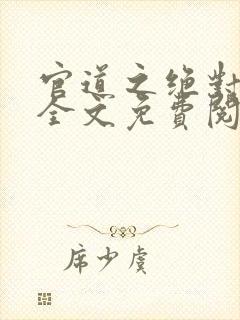 官道之绝對
全文免費閱
席少虞